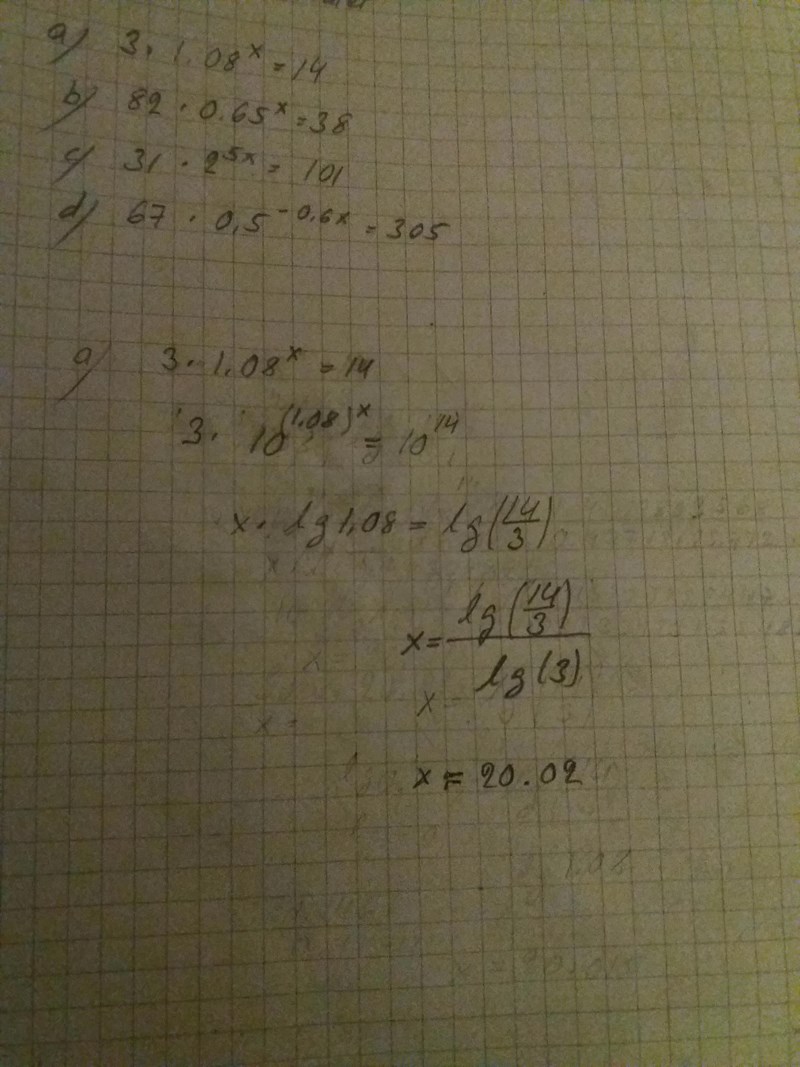 a) 3. 1.08^x = 14
b) 82 · 0.65^x = 38
c) 31 · 2^5x = 101
d) 67 · 0,5^-0,6x = 305
a) 3. 1.08^x = 14
3. 10^(1.08)^x = 10^14
x · lg 1,08 = lg(14/3)
x = lg(14/3) / lg(3)
x
x =
x = 20.02